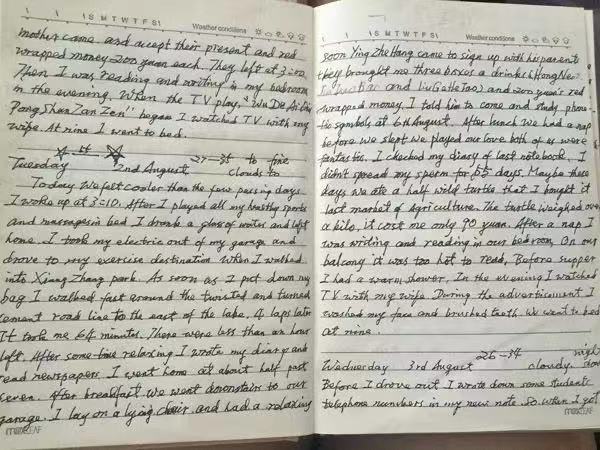 ISMTWTFSI
Weather conditions
mother came and accept their present and red
wrapped money 200 yuan each. They left at 3=00.
Then I was reading and writing in my bedroom
in the evening. When the TV play, "Wu De Ai
Pong Shan Zan Zen" began I watched TV with my
wife. At nine I went to bed.
Tuesday 2nd August to fine
clouds to
Today we felt cooler than the few passing days
I woke up at 3=10. After I played all my healthy sports
and massages in bed I drank a glass of water and left
home. I took my electric out of my garage and
drove to my exercise destination When I walked
into Xiang Zhang park. As soon as I put down my
bag I walked fast around the twisted and turned
cement road line to the east of the lake. 4 laps later
It took me 64 minutes. There were less than an hour
left. After some time relaxing I wrote my diary and
read newspapers. I went home at about half past
seven. After breakfast we went downstairs to our
garage. I lay on a lying chair and had a relaxing
ISMTWTFSI
Weather conditions
soon Ying Ze Hang came to sign up with his parents
they brought me three boxes a drinks (Hong Niu
and Liu Ge He Tao) and 200 yuan's red
wrapped money. I told him to come and study phone-
tic symbols at 6th August. After lunch we had a nap
before we slept we played our love both of us were
fantastic. I checked my diary of last notebook. I
didn't spread my sperm for 65 days. Maybe these
days we ate a half wild turtle that I bought it
last market of Agriculture. The turtle weighed over
a kilo, it cost me only 90 yuan. After a nap I
was writing and reading in our bedroom. On our
balcony it was too hot to read. Before supper
I had a warm shower. In the evening I watched
TV with my wife. During the advertisement I
washed my face and brushed teeth. We went to bed
at nine.
Wednesday 3rd August 26-34 cloudy
Before I drove out I wrote down some students
telephone numbers in my new note. So when I got